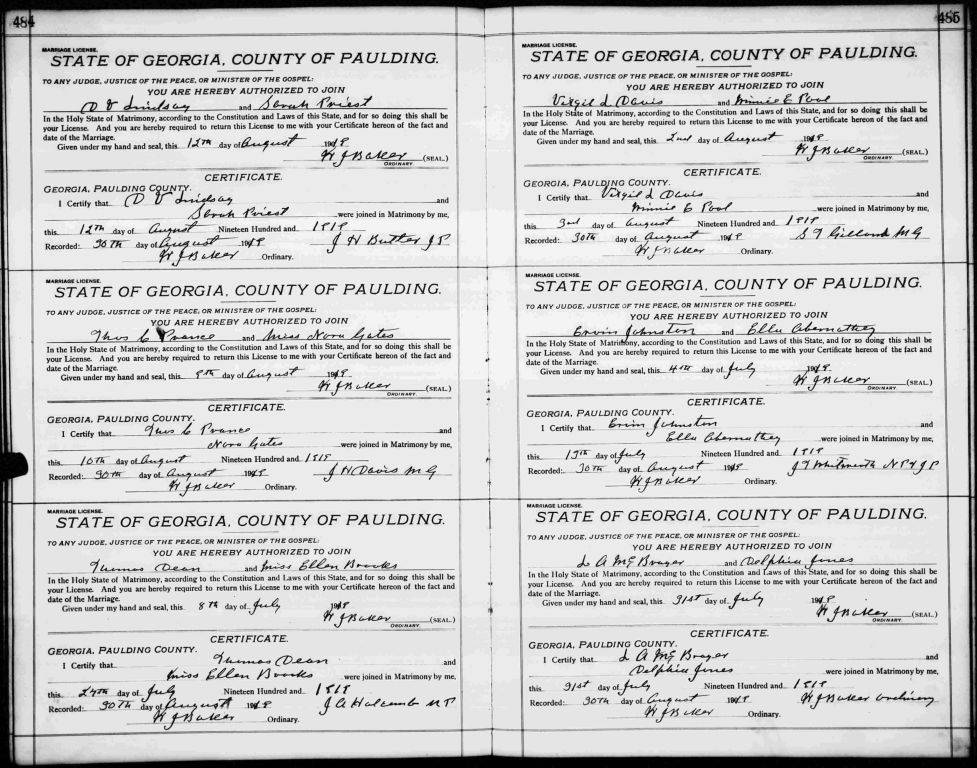 484
MARRIAGE LICENSE.
STATE OF GEORGIA, COUNTY OF PAULDING.
TO ANY JUDGE, JUSTICE OF THE PEACE, OR MINISTER OF THE GOSPEL:
YOU ARE HEREBY AUTHORIZED TO JOIN
D V Lindsay and Sarah Priest
In the Holy State of Matrimony, according to the Constitution and Laws of this State, and for so doing this shall be
your License. And you are hereby required to return this License to me with your Certificate hereon of the fact and
date of the Marriage.
Given under my hand and seal, this 12th day of August 1919
W J Baker (SEAL.)
ORDINARY.
CERTIFICATE.
GEORGIA, PAULDING COUNTY.
I Certify that D V Lindsay and
Sarah Priest were joined in Matrimony by me,
this 12th day of August Nineteen Hundred and 1919
Recorded: 30th day of August 1919 J H Butler J P
W J Baker Ordinary.
MARRIAGE LICENSE.
STATE OF GEORGIA, COUNTY OF PAULDING.
TO ANY JUDGE, JUSTICE OF THE PEACE, OR MINISTER OF THE GOSPEL:
YOU ARE HEREBY AUTHORIZED TO JOIN
Thos C Prance and Miss Nora Gates
In the Holy State of Matrimony, according to the Constitution and Laws of this State, and for so doing this shall be
your License. And you are hereby required to return this License to me with your Certificate hereon of the fact and
date of the Marriage.
Given under my hand and seal, this day of August 1919
W J Baker (SEAL.)
ORDINARY.
CERTIFICATE.
GEORGIA, PAULDING COUNTY.
I Certify that Thos C Prance and
Nora Gates were joined in Matrimony by me,
this 10th day of August Nineteen Hundred and 1919
Recorded: 30th day of August 1919 J H Davis M G
W J Baker Ordinary.
MARRIAGE LICENSE.
STATE OF GEORGIA, COUNTY OF PAULDING.
TO ANY JUDGE, JUSTICE OF THE PEACE, OR MINISTER OF THE GOSPEL:
YOU ARE HEREBY AUTHORIZED TO JOIN
Thomas Dean and Miss Ellen Brooks
In the Holy State of Matrimony, according to the Constitution and Laws of this State, and for so doing this shall be
your License. And you are hereby required to return this License to me with your Certificate hereon of the fact and
date of the Marriage.
Given under my hand and seal, this 8th day of July 1919
W J Baker (SEAL.)
ORDINARY.
CERTIFICATE.
GEORGIA, PAULDING COUNTY.
I Certify that Thomas Dean and
Miss Ellen Brooks were joined in Matrimony by me,
this 27th day of July Nineteen Hundred and 1919
Recorded: 30th day of August 1919 J A Holcomb N P
W J Baker Ordinary.
485
MARRIAGE LICENSE.
STATE OF GEORGIA, COUNTY OF PAULDING.
TO ANY JUDGE, JUSTICE OF THE PEACE, OR MINISTER OF THE GOSPEL:
YOU ARE HEREBY AUTHORIZED TO JOIN
Virgil L Davis and Minnie E Pool
In the Holy State of Matrimony, according to the Constitution and Laws of this State, and for so doing this shall be
your License. And you are hereby required to return this License to me with your Certificate hereon of the fact and
date of the Marriage.
Given under my hand and seal, this 2nd day of August 1919
W J Baker (SEAL.)
ORDINARY.
CERTIFICATE.
GEORGIA, PAULDING COUNTY.
I Certify that Virgil L Davis and
Minnie E Pool were joined in Matrimony by me,
this 3rd day of August Nineteen Hundred and 1919
Recorded: 30th day of August 1919 M G
W J Baker Ordinary.
MARRIAGE LICENSE.
STATE OF GEORGIA, COUNTY OF PAULDING.
TO ANY JUDGE, JUSTICE OF THE PEACE, OR MINISTER OF THE GOSPEL:
YOU ARE HEREBY AUTHORIZED TO JOIN
Ervin Johnston and Ella Abernathey
In the Holy State of Matrimony, according to the Constitution and Laws of this State, and for so doing this shall be
your License. And you are hereby required to return this License to me with your Certificate hereon of the fact and
date of the Marriage.
Given under my hand and seal, this 4th day of July 1919
W J Baker (SEAL.)
ORDINARY.
CERTIFICATE.
GEORGIA, PAULDING COUNTY.
I Certify that Ervin Johnston and
Ella Abernathey were joined in Matrimony by me,
this day of July Nineteen Hundred and 1919
Recorded: 30th day of August 1919 J T Whitworth N P & J P
W J Baker Ordinary.
MARRIAGE LICENSE.
STATE OF GEORGIA, COUNTY OF PAULDING.
TO ANY JUDGE, JUSTICE OF THE PEACE, OR MINISTER OF THE GOSPEL:
YOU ARE HEREBY AUTHORIZED TO JOIN
L A McBrayer and Delphia Jones
In the Holy State of Matrimony, according to the Constitution and Laws of this State, and for so doing this shall be
your License. And you are hereby required to return this License to me with your Certificate hereon of the fact and
date of the Marriage.
Given under my hand and seal, this 31st day of July 1919
W J Baker (SEAL.)
ORDINARY.
CERTIFICATE.
GEORGIA, PAULDING COUNTY.
I Certify that L A McBrayer and
Delphia Jones were joined in Matrimony by me,
this 31st day of July Nineteen Hundred and 1919
Recorded: 30th day of August 1919 W J Baker Ordinary
W J Baker Ordinary.